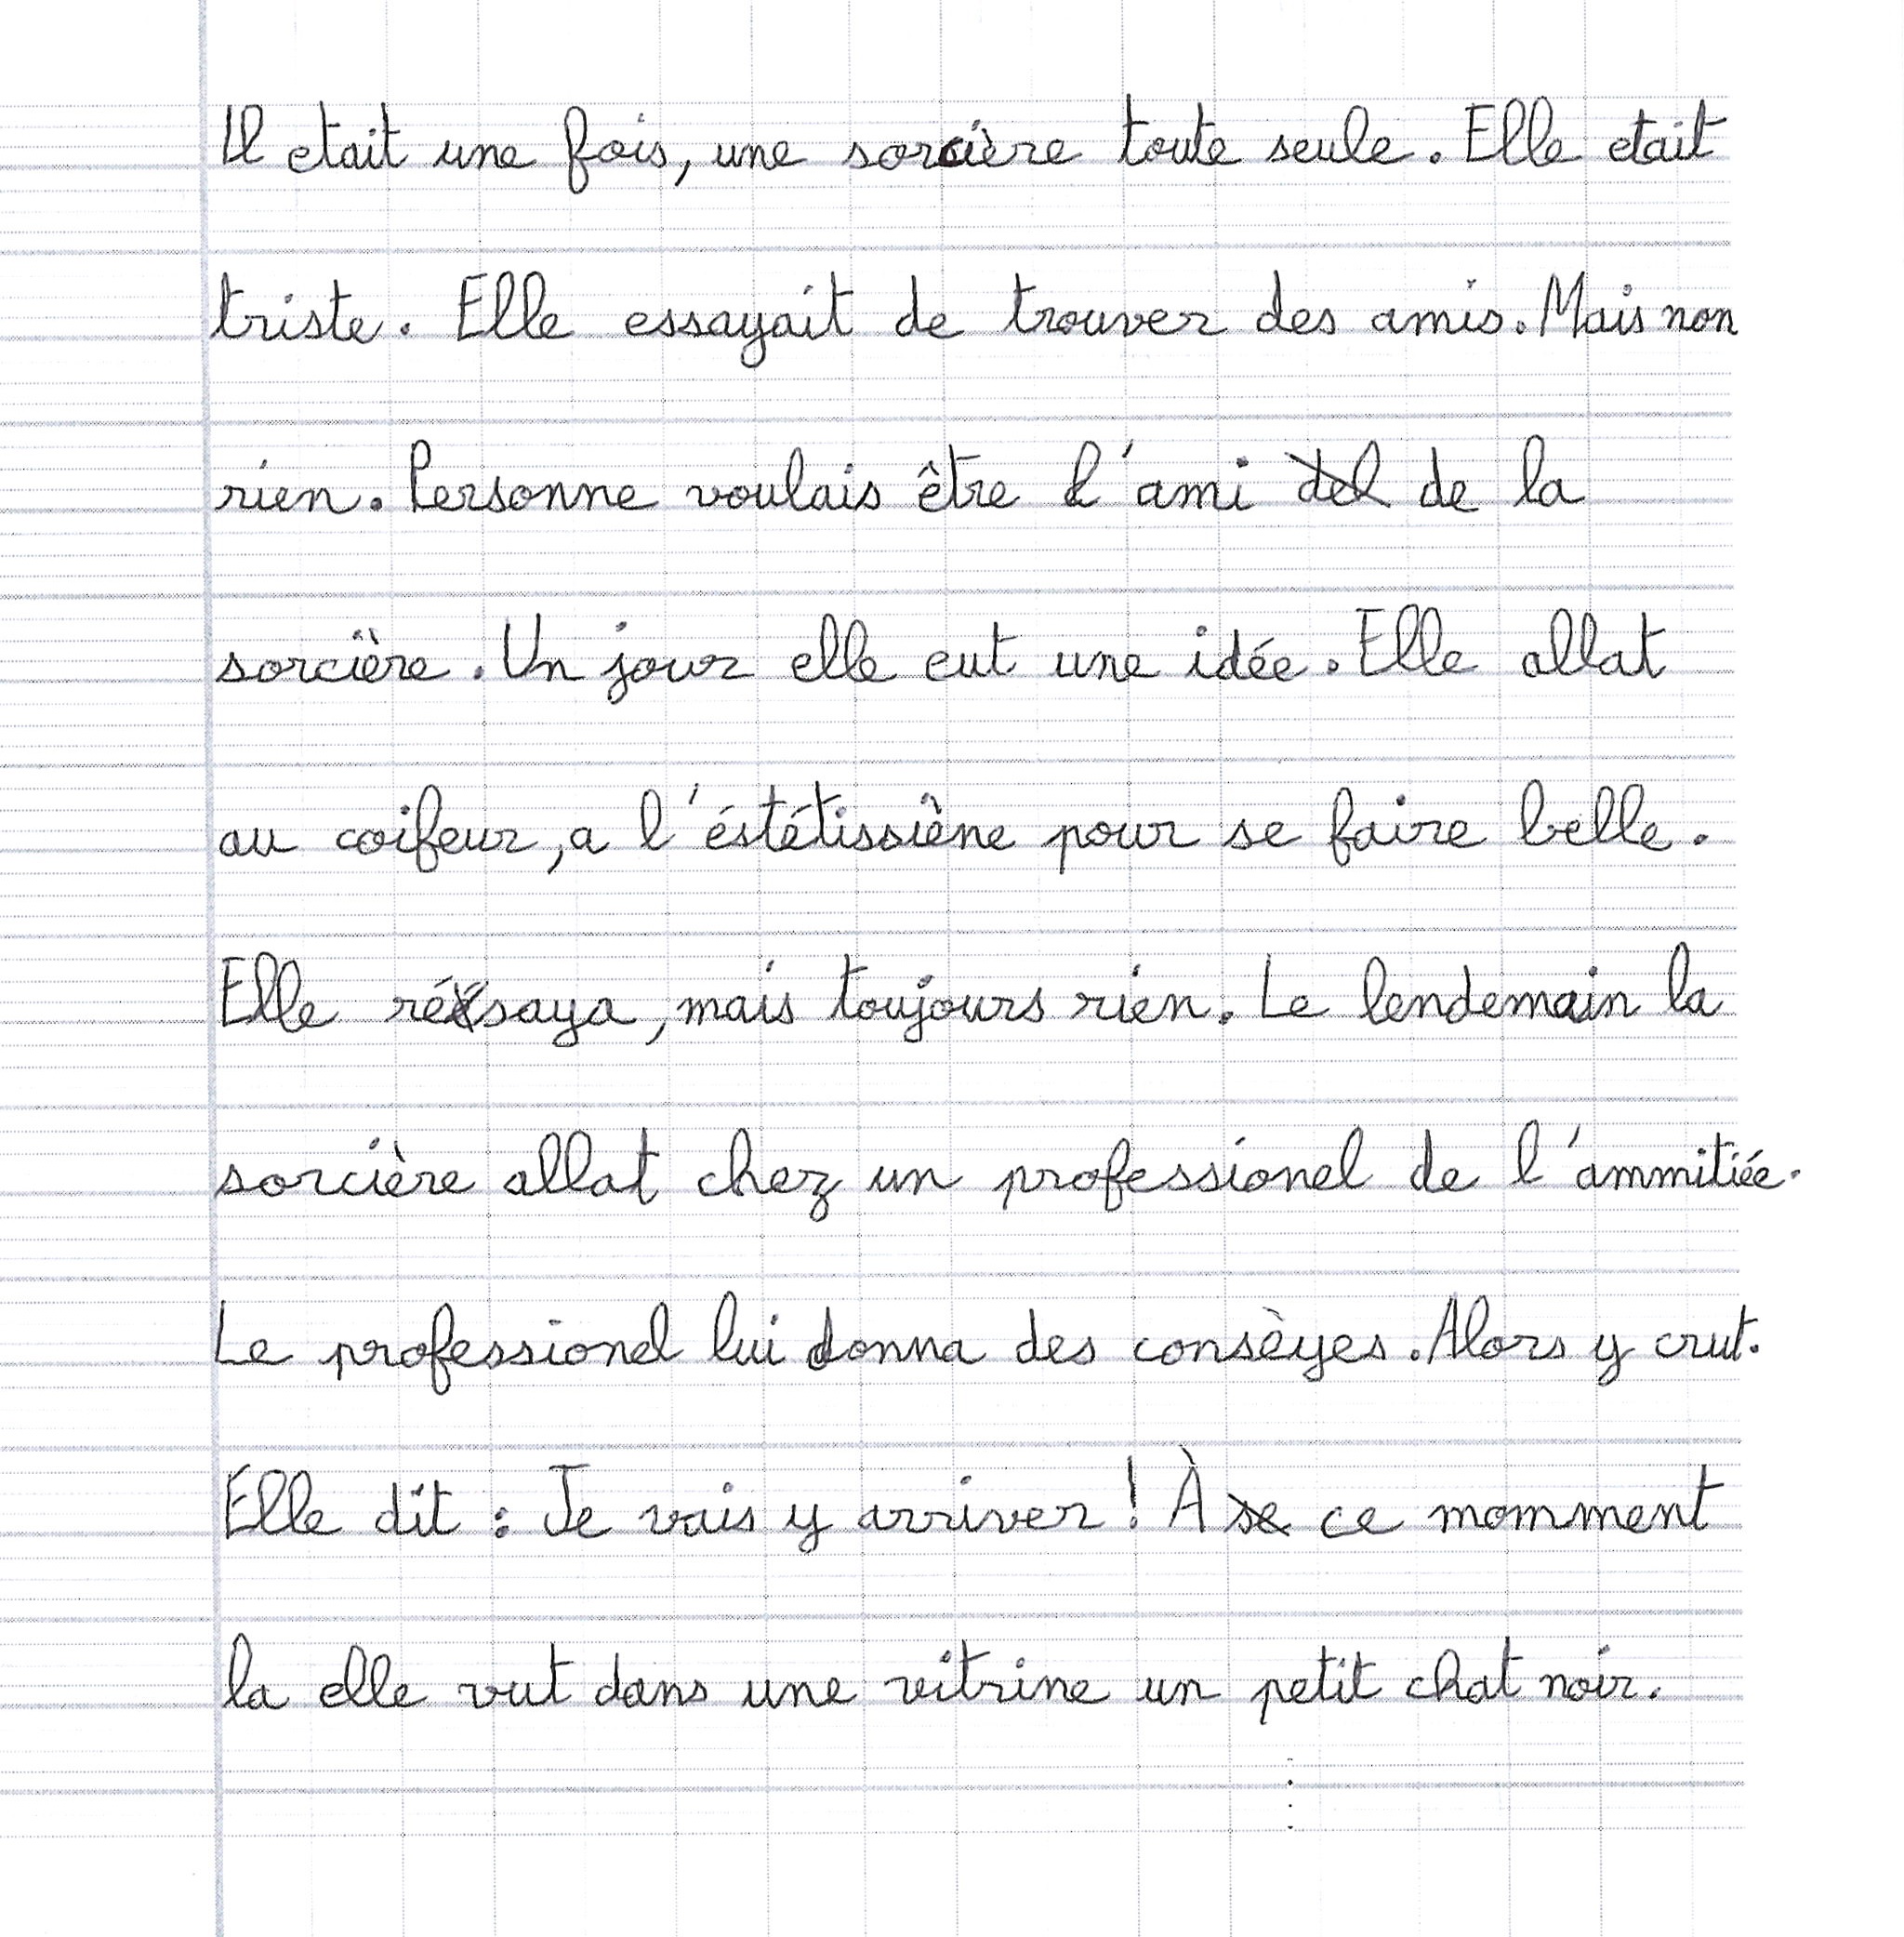 Il etait une fois, une sorcière toute seule. Elle etait
triste. Elle essayait de trouver des amis. Mais non
rien. Personne voulais être l'ami de la
sorcière. Un jour elle eut une idée. Elle allat
au coifeur, a l'éstétissiène pour se faire belle.
Elle réssaya, mais toujours rien. Le lendemain la
sorcière allat chez un professionel de l'ammitiée.
Le professionel lui donna des consèyes. Alors y crut.
Elle dit : Je vais y arriver ! À ce momment
la elle vut dans une vitrine un petit chat noir.